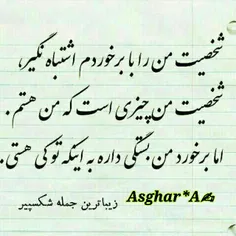 شخصیت من را با برخوردم اشتباه نگیر،
شخصیت من چیزی است که من هستم.
اما برخورد من بستگی داره به اینکه تو کی هستی.
Asghar*A✍
زیباترین جمله شکسپیر